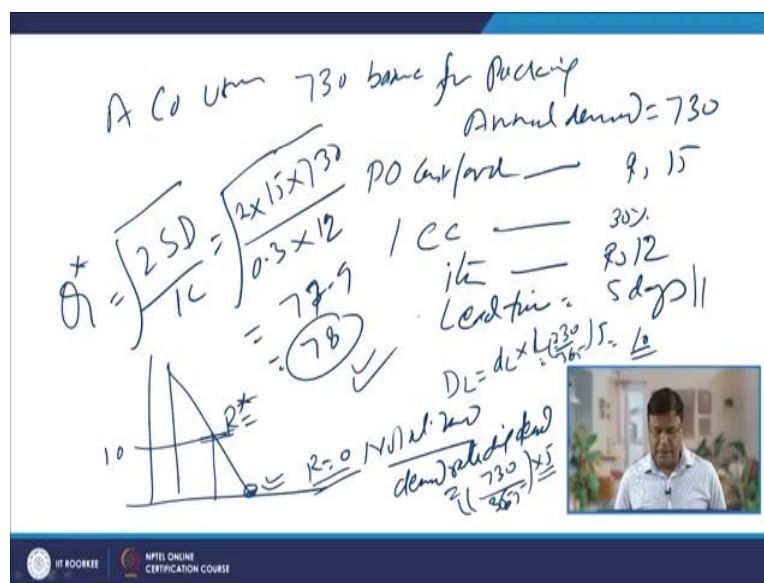 A Co 730 for Packing
Annual demand = 730
PO Cost/ord — Rs 15
ICC — 30%
item — Rs 12
Lead time = 5 days
Q* = √(2SD/IC) = √(2×15×730/0.3×12)
= 77.9
= 78
D_L = d_L × L = (730/365) 5 = 10
10 R*
R=0 No lead time
demand rate
= (730/365) × 5
IIT ROORKEE NPTEL ONLINE
CERTIFICATION COURSE